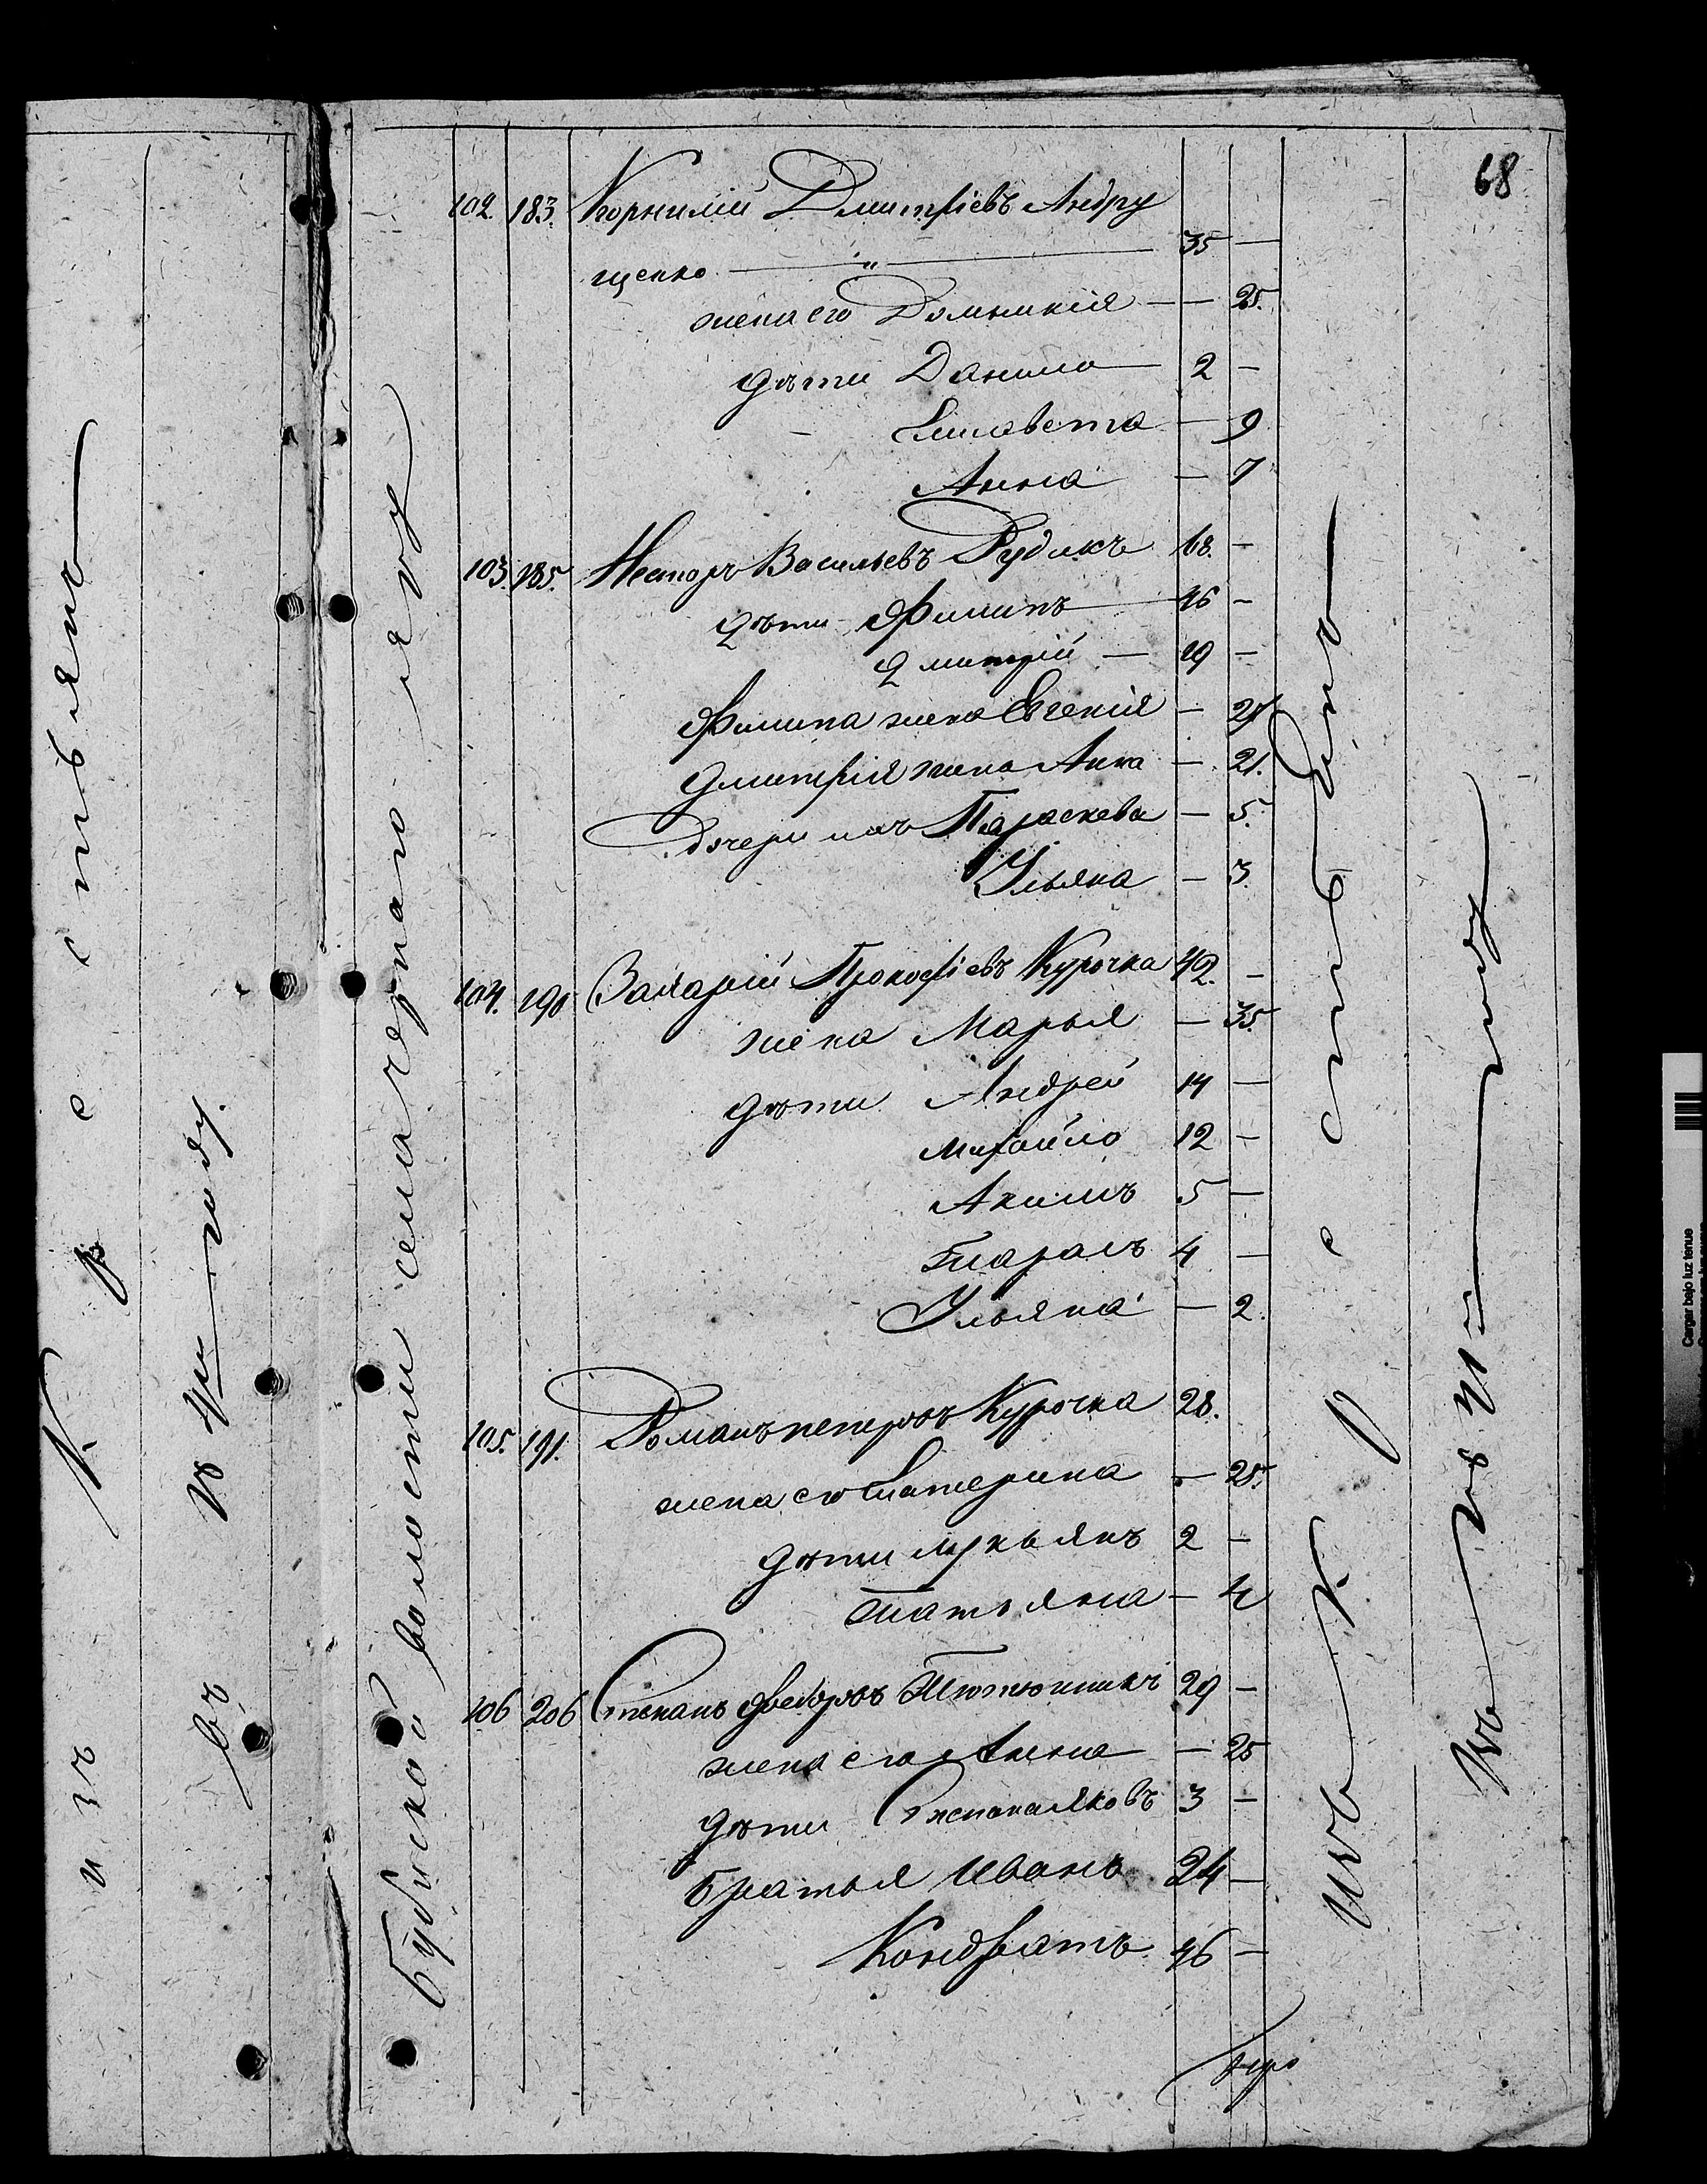 68
102. 183. Корнилій Дмитріевъ Андру
щенко — „ — 35 —
жена его Домникія — 25.
дѣти Данило 2 —
Елисавета — 9
Анна — 7
103. 185. Несторъ Васильевъ Рудикъ 68. —
дѣти Филипъ 46 —
Дмитрій — 19 —
Филипа жена Евгенія — 27
Дмитрія жена Анна — 21.
Дочери ихъ Параскева — 5.
Ульяна — 3.
104. 190 Захарій Прокофіевъ Курочка 42. —
жена Марья — 35.
дѣти Андрей 14 —
Михайло 12 —
Акимъ 5 —
Тарасъ 4 —
Ульяна — 2.
105. 191. Романъ петровъ Курочка 28.
жена его Катерина — 25.
дѣти лукьянъ 2 —
татьяна — 4
106 206 Степанъ Федоровъ Тютюнникъ 29 —
жена его Анна — 25
дѣти Степана Яковъ 3 —
братья Иванъ 24 —
Кондратъ 16 —
Бубнской волости села черпано
изъ К р е с т ь я н ъ
въ
К р е с т ь я н ъ
Cargar bajo luz tenue